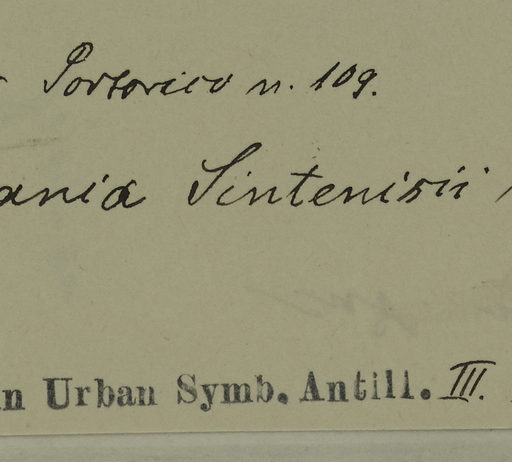 Portorico n. 109.
ania Sintenisii
in Urban Symb. Antill. III.